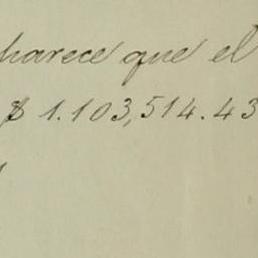 parece que el
$ 1.103,514.43